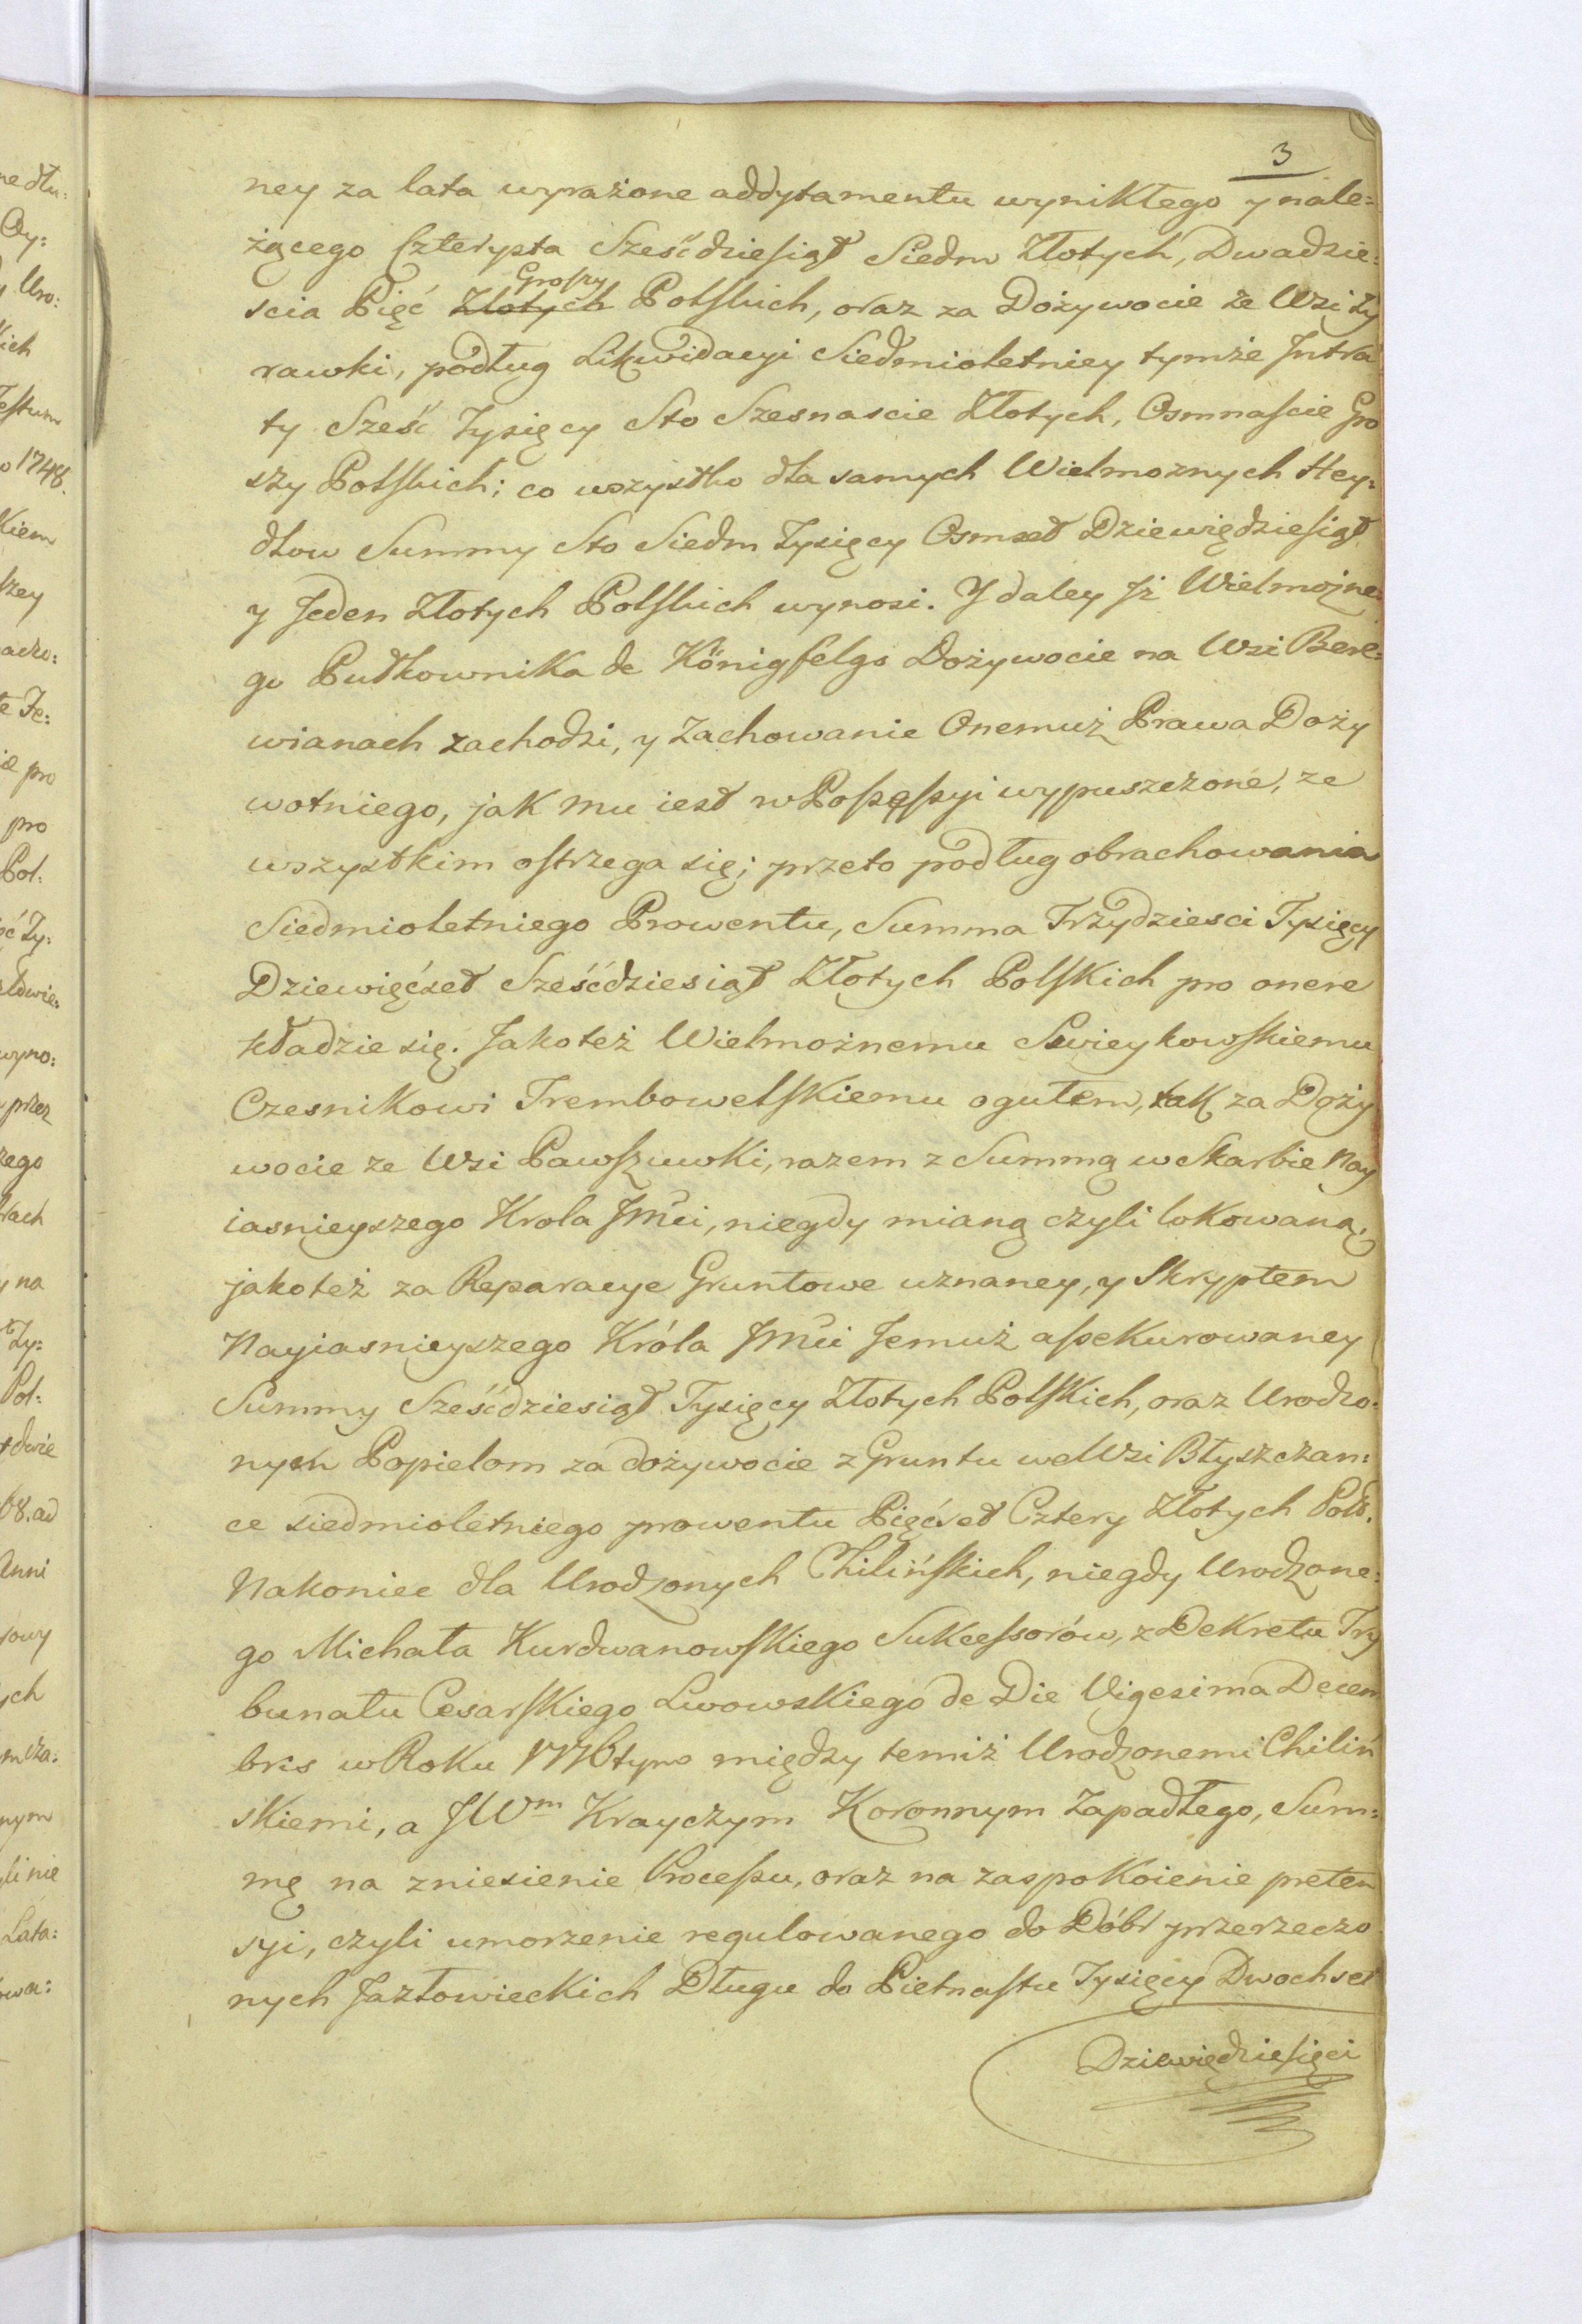 3
ney za lata wyrażone addytamentu wynikłego y nale=
żącego Czterysta Sześćdziesiąt Siedm Złotych, Dwadzie=
Groszy
scia Pięć Złotych Polskich, oraz za Dożywocie ze Wsi Ży
rawki, podług Likwidacyi Siedmioletniey tymże Intra
ty Sześć Tysięcy Sto Szesnascie Złotych, Osmnascie Gro
szy Polskich; co wszystko dla samych Wielmoznych Hey=
dlow Summy Sto Siedm Tysięcy Osmset Dziewiędziesiąt
y Jeden Złotych Polskich wynosi. Y daley Iż Wielmożne=
go Pułkownika de Königfelgs Dożywocie na Wsi Bere=
wianach zachodzi, y Zachowanie Onemuż Prawa Doży
wotniego, jak mu iest w Possessyi wypuszczone, ze
wszystkim ostrzega się; przeto podług obrachowania
Siedmioletniego Prowentu, Summa Trzydziesci Tysięcy
Dziewięćset Sześćdziesiąt Złotych Polskich pro onere
kładzie się. Jakoteż Wielmożnemu Swieykowskiemu
Czesnikowi Trembowelskiemu ogułem, tak za Doży
wocie ze Wsi Pawszuwki, razem z Summą w Skarbie Nay
iasnieyszego Krola Jmci, niegdy mianą czyli lokowaną,
jakoteż za Reparacye Gruntowe uznaney, y Skryptem
Nayiasnieyszego Króla Jmci Jemuż assekurowaney
Summy Sześćdziesiąt Tysięcy Złotych Polskich, oraz Urodzo=
nym Popielom za dożywocie z Gruntu we Wsi Błyszczan=
ce siedmioletniego prowentu Pięćset Cztery Złotych Pols.
Nakoniec dla Urodzonych Chilińskich, niegdy Urodzone=
go Michała Kurdwanowskiego Sukcessorów, z Dekretu Try
bunału Cesarskiego Lwowskiego de Die Vigesima Decem
bris w Roku 1776tym między temiż Urodzonemi Chiliń
skiemi, a JWm Krayczym Koronnym Zapadłego, Sum=
mę na zniesienie Processu, oraz na zaspokoienie preten
syi, czyli umorzenie regulowanego do Dóbr przerzeczo
nych Jazłowieckich Długu do Pietnastu Tysięcy Dwochset
Dziewiędziesięci